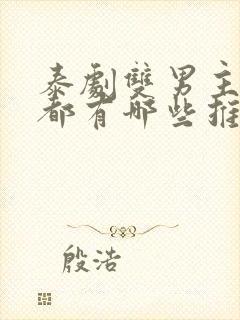 泰劇雙男主
都有哪些推
殷浩